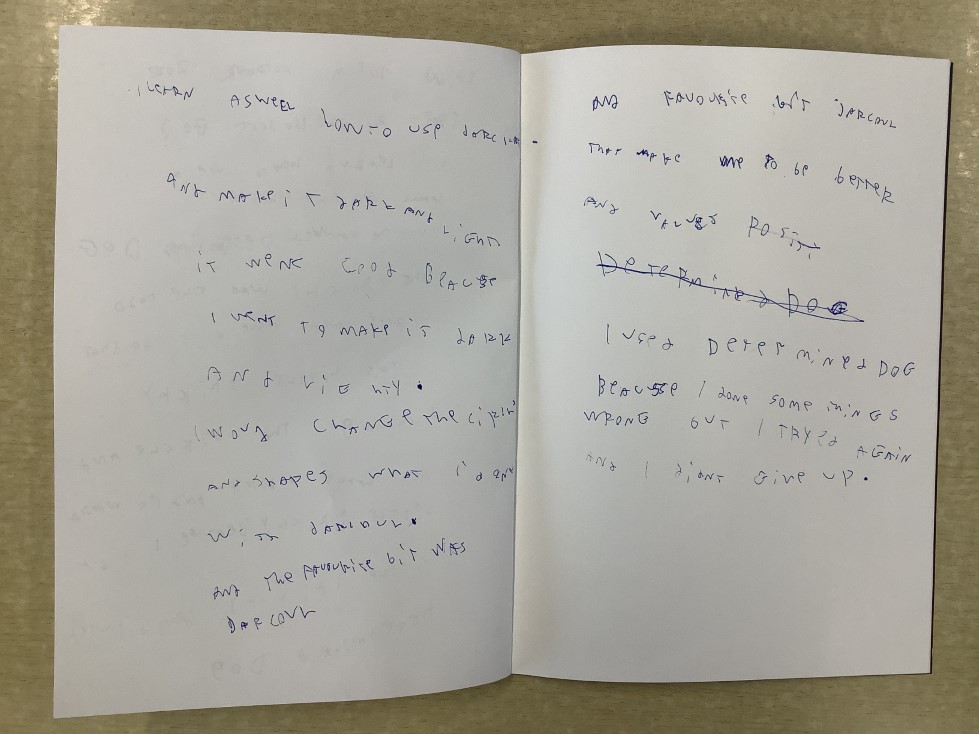 I LEARN ASWEEL
how to use
AND MAKE iT DARK AND
LiGHT
iT WENT GOOD BEACUSE
I WENT TO MAKE iT DARK
AND LiGHTY.
I WOUD CHANGE THE
AND SHAPES WHAT I DONE
WiTH DARCOUL.
AND THE FAVOURITE biT WAS
DARCOUL
AND FAVOURITE biT DARCOUL
THAT MAKE ME TO be beTTER
AND VALUES
DETERMINED DOG
I USED DETERMINED DOG
BEACUSE I DONE SOME THINGS
WRONG bUT I TRYED AGAIN
AND I DIDNT GIVE UP.